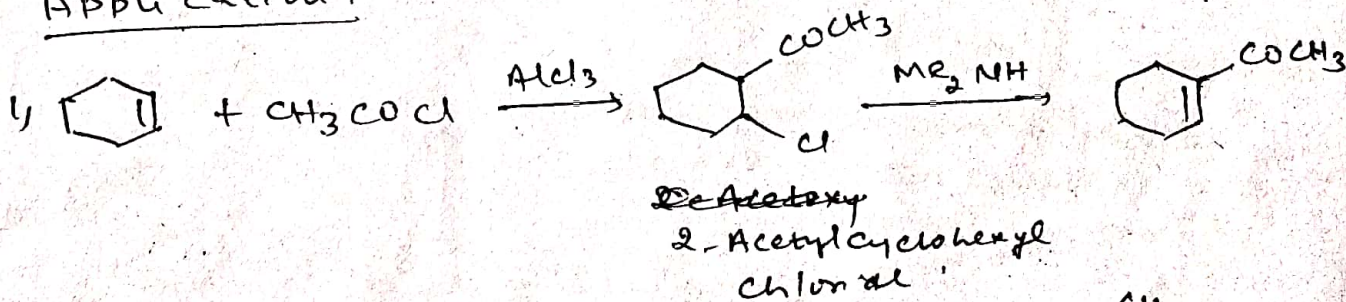 Application :
1) + CH3COCl AlCl3 COCH3 Cl Me2NH COCH3
2-Acetoxy
2-Acetylcyclohexyl
chloride